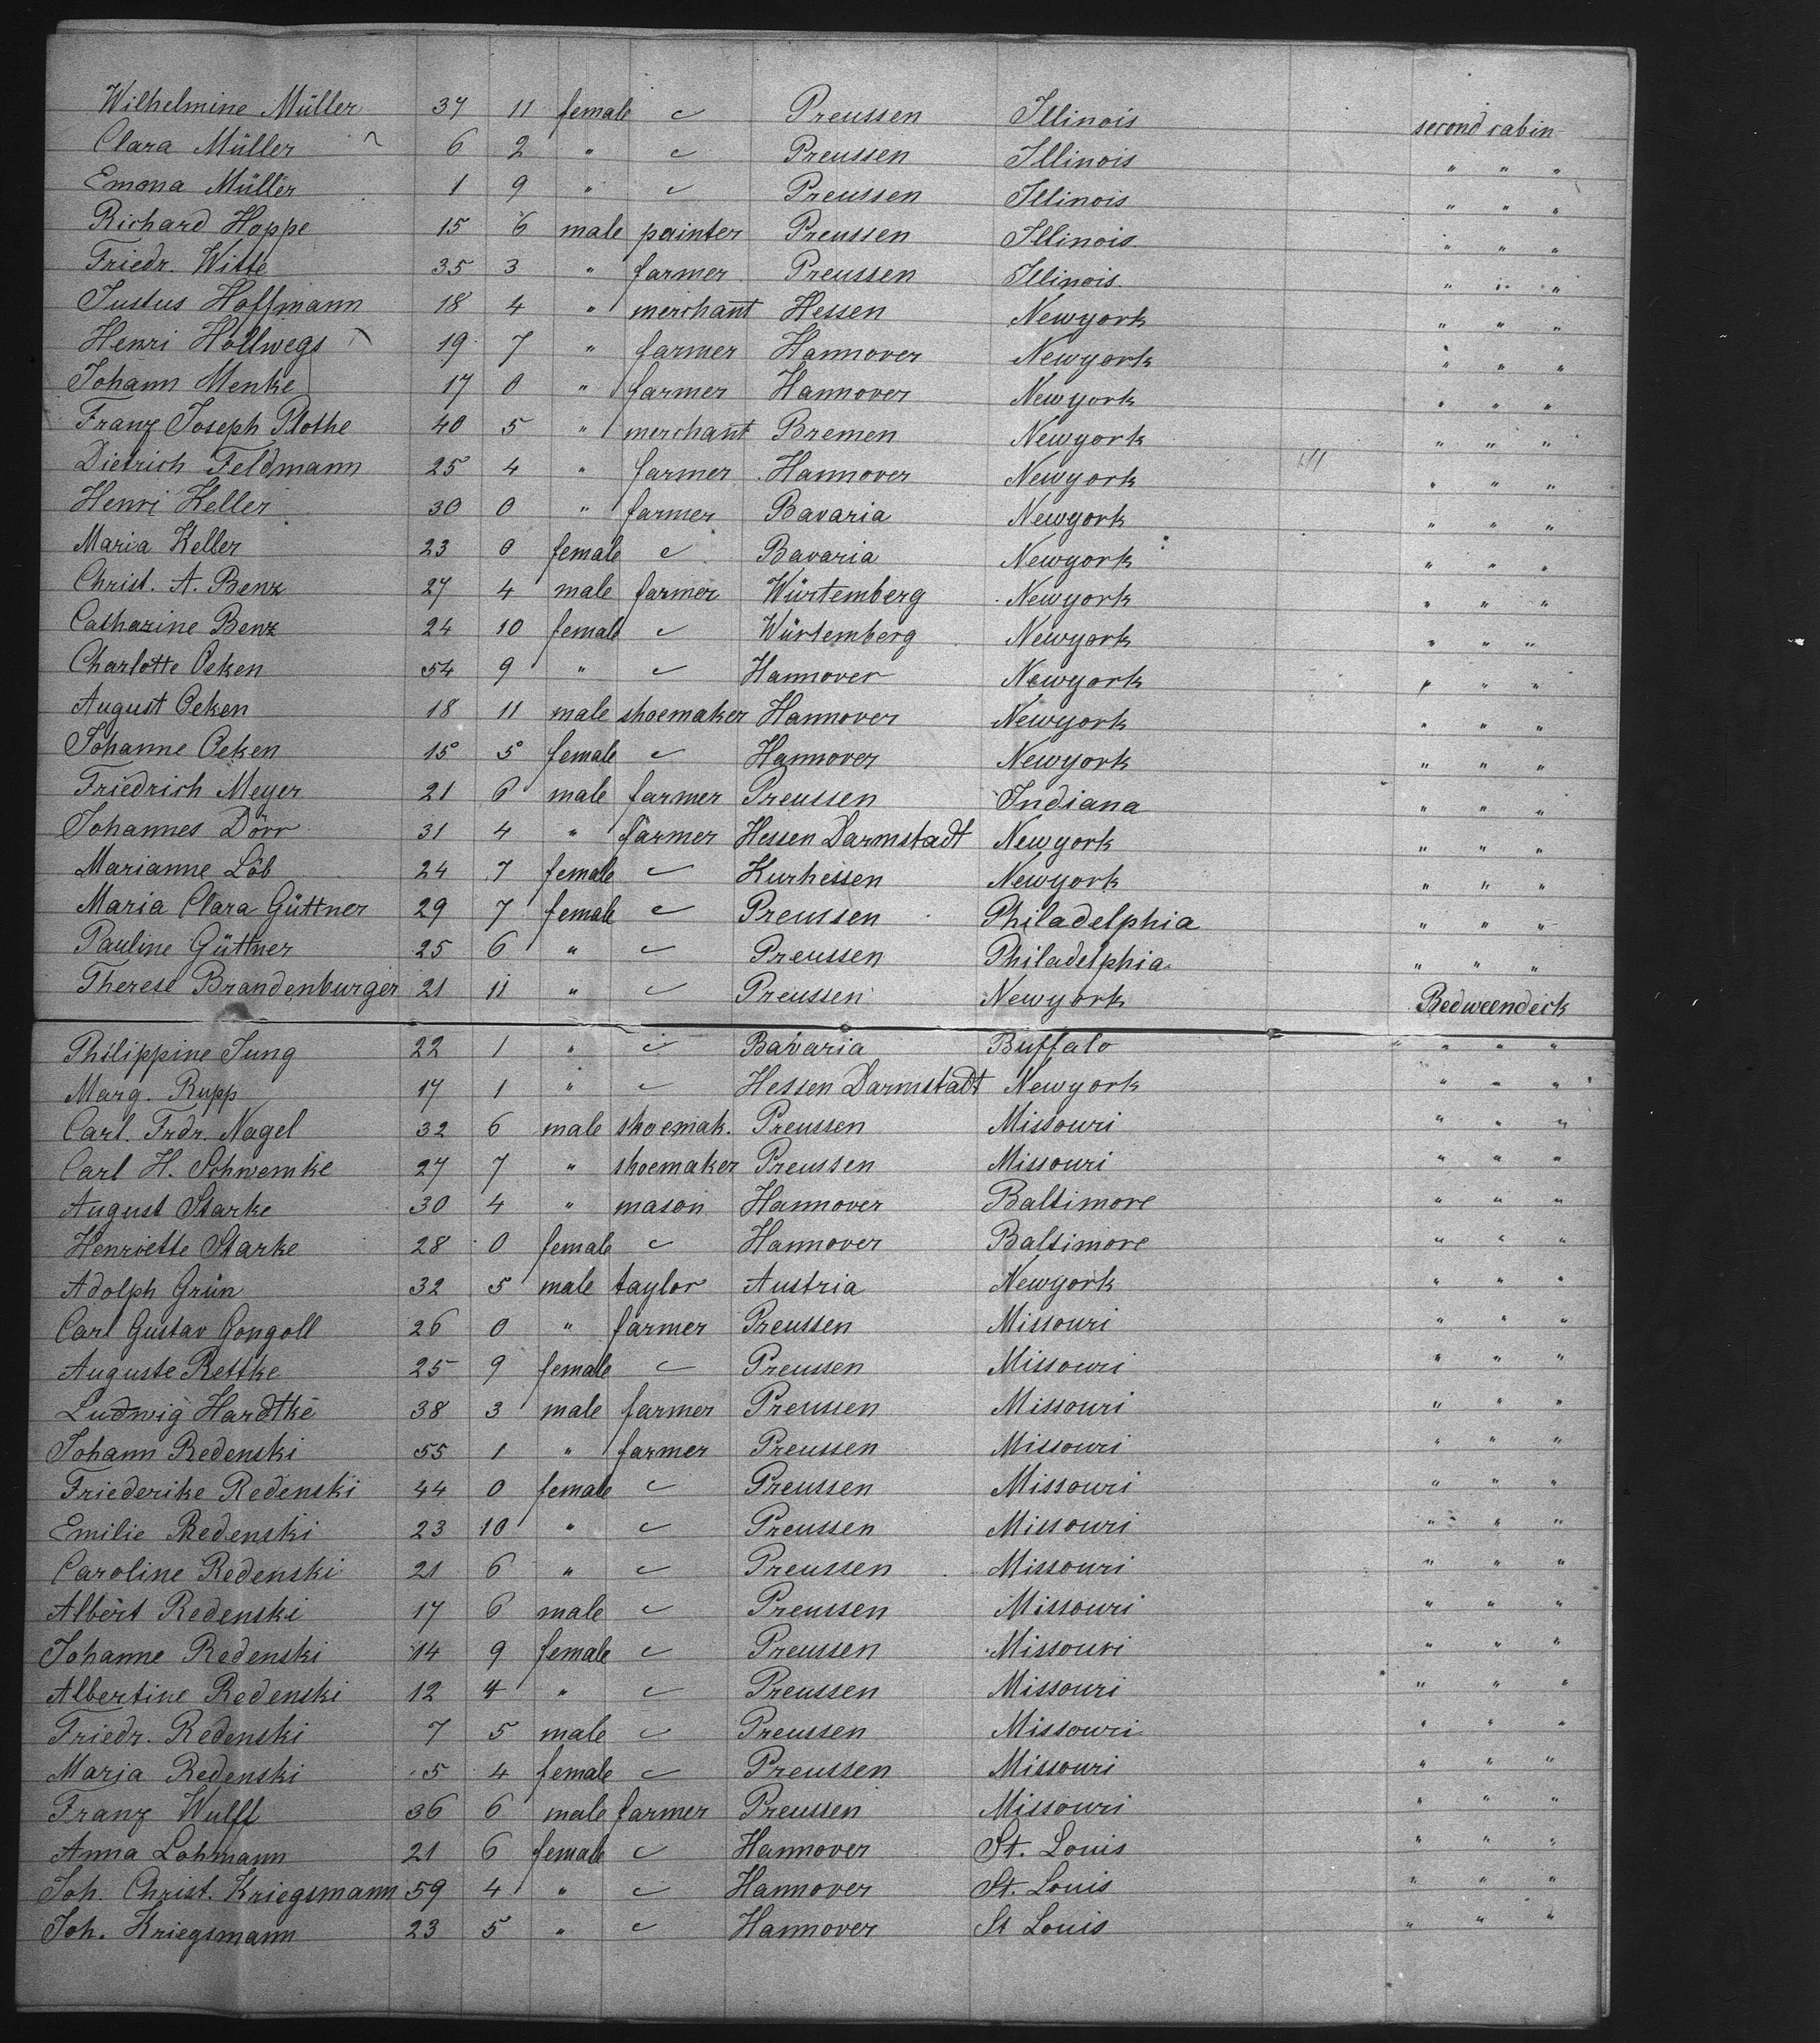 Wilhelmine Müller 37 11 female c Preussen Illinois second cabin
Clara Müller 6 2 " c Preussen Illinois " " "
Emma Müller 1 9 " c Preussen Illinois " " "
Richard Hoppe 15 6 male painter Preussen Illinois " " "
Friedr. Witte 35 3 " farmer Preussen Illinois " " "
Justus Hoffmann 18 4 " merchant Hessen Newyork " " "
Henri Hollwegs 19 7 " farmer Hannover Newyork " " "
Johann Menke 17 0 " farmer Hannover Newyork " " "
Franz Joseph Plothe 40 5 " merchant Bremen Newyork " " "
Dietrich Feldmann 25 4 " farmer Hannover Newyork " " "
Henri Keller 30 0 " farmer Bavaria Newyork " " "
Maria Keller 23 0 female c Bavaria Newyork " " "
Christ. A. Benz 27 4 male farmer Würtemberg Newyork " " "
Catharine Benz 24 10 female c Würtemberg Newyork " " "
Charlotte Oeken 54 9 " c Hannover Newyork " " "
August Oeken 18 11 male shoemaker Hannover Newyork " " "
Johanne Oeken 15 5 female c Hannover Newyork " " "
Friedrich Meyer 21 6 male farmer Preussen Indiana " " "
Johannes Dörr 31 4 " farmer Hessen Darmstadt Newyork " " "
Marianne Löb 24 7 female c Kurhessen Newyork " " "
Maria Clara Güttner 29 7 female c Preussen Philadelphia " " "
Pauline Güttner 25 6 " c Preussen Philadelphia " " "
Therese Brandenburger 21 11 " c Preussen Newyork Bedweendeck
Philippine Jung 22 1 " c Bavaria Buffalo " " "
Marg. Rupp 17 1 " c Hessen Darmstadt Newyork " " "
Carl. Frdr. Nagel 32 6 male shoemak. Preussen Missouri " " "
Carl H. Schwemke 27 7 " shoemaker Preussen Missouri " " "
August Starke 30 4 " mason Hannover Baltimore " " "
Henriette Starke 28 0 female c Hannover Baltimore " " "
Adolph Grün 32 5 male taylor Austria Newyork " " "
Carl Gustav Gongoll 26 0 " farmer Preussen Missouri " " "
Auguste Rettke 25 9 female c Preussen Missouri " " "
Ludwig Hardtke 38 3 male farmer Preussen Missouri " " "
Johann Redenski 55 1 " farmer Preussen Missouri " " "
Friederike Redenski 44 0 female c Preussen Missouri " " "
Emilie Redenski 23 10 " c Preussen Missouri " " "
Caroline Redenski 21 6 " c Preussen Missouri " " "
Albert Redenski 17 6 male c Preussen Missouri " " "
Johanne Redenski 14 9 female c Preussen Missouri " " "
Albertine Redenski 12 4 " c Preussen Missouri " " "
Friedr. Redenski 7 5 male c Preussen Missouri " " "
Marja Redenski 5 4 female c Preussen Missouri " " "
Franz Wulff 36 6 male farmer Preussen Missouri " " "
Anna Lohmann 21 6 female c Hannover St. Louis " " "
Joh. Christ. Kriegsmann 59 4 " c Hannover St. Louis " " "
Joh. Kriegsmann 23 5 " c Hannover St Louis " " "